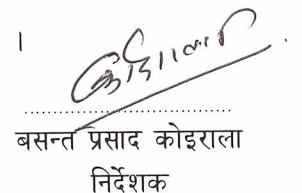 ।
कोइराला
..............................
बसन्त प्रसाद कोइराला
निर्देशक